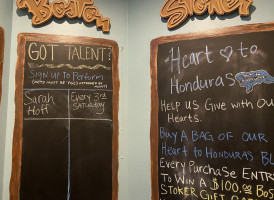 Boston
GOT TALENT?
SIGN UP TO PERFORM
Sarah
Hoff
Every 3rd
Saturday
Stoker
Heart to
Honduras
Help us Give with Our
Hearts.
Buy a bag of our
Heart to Honduras Bl
Every Purchase Ent
to Win a $100.00 Bos
Stoker Gift